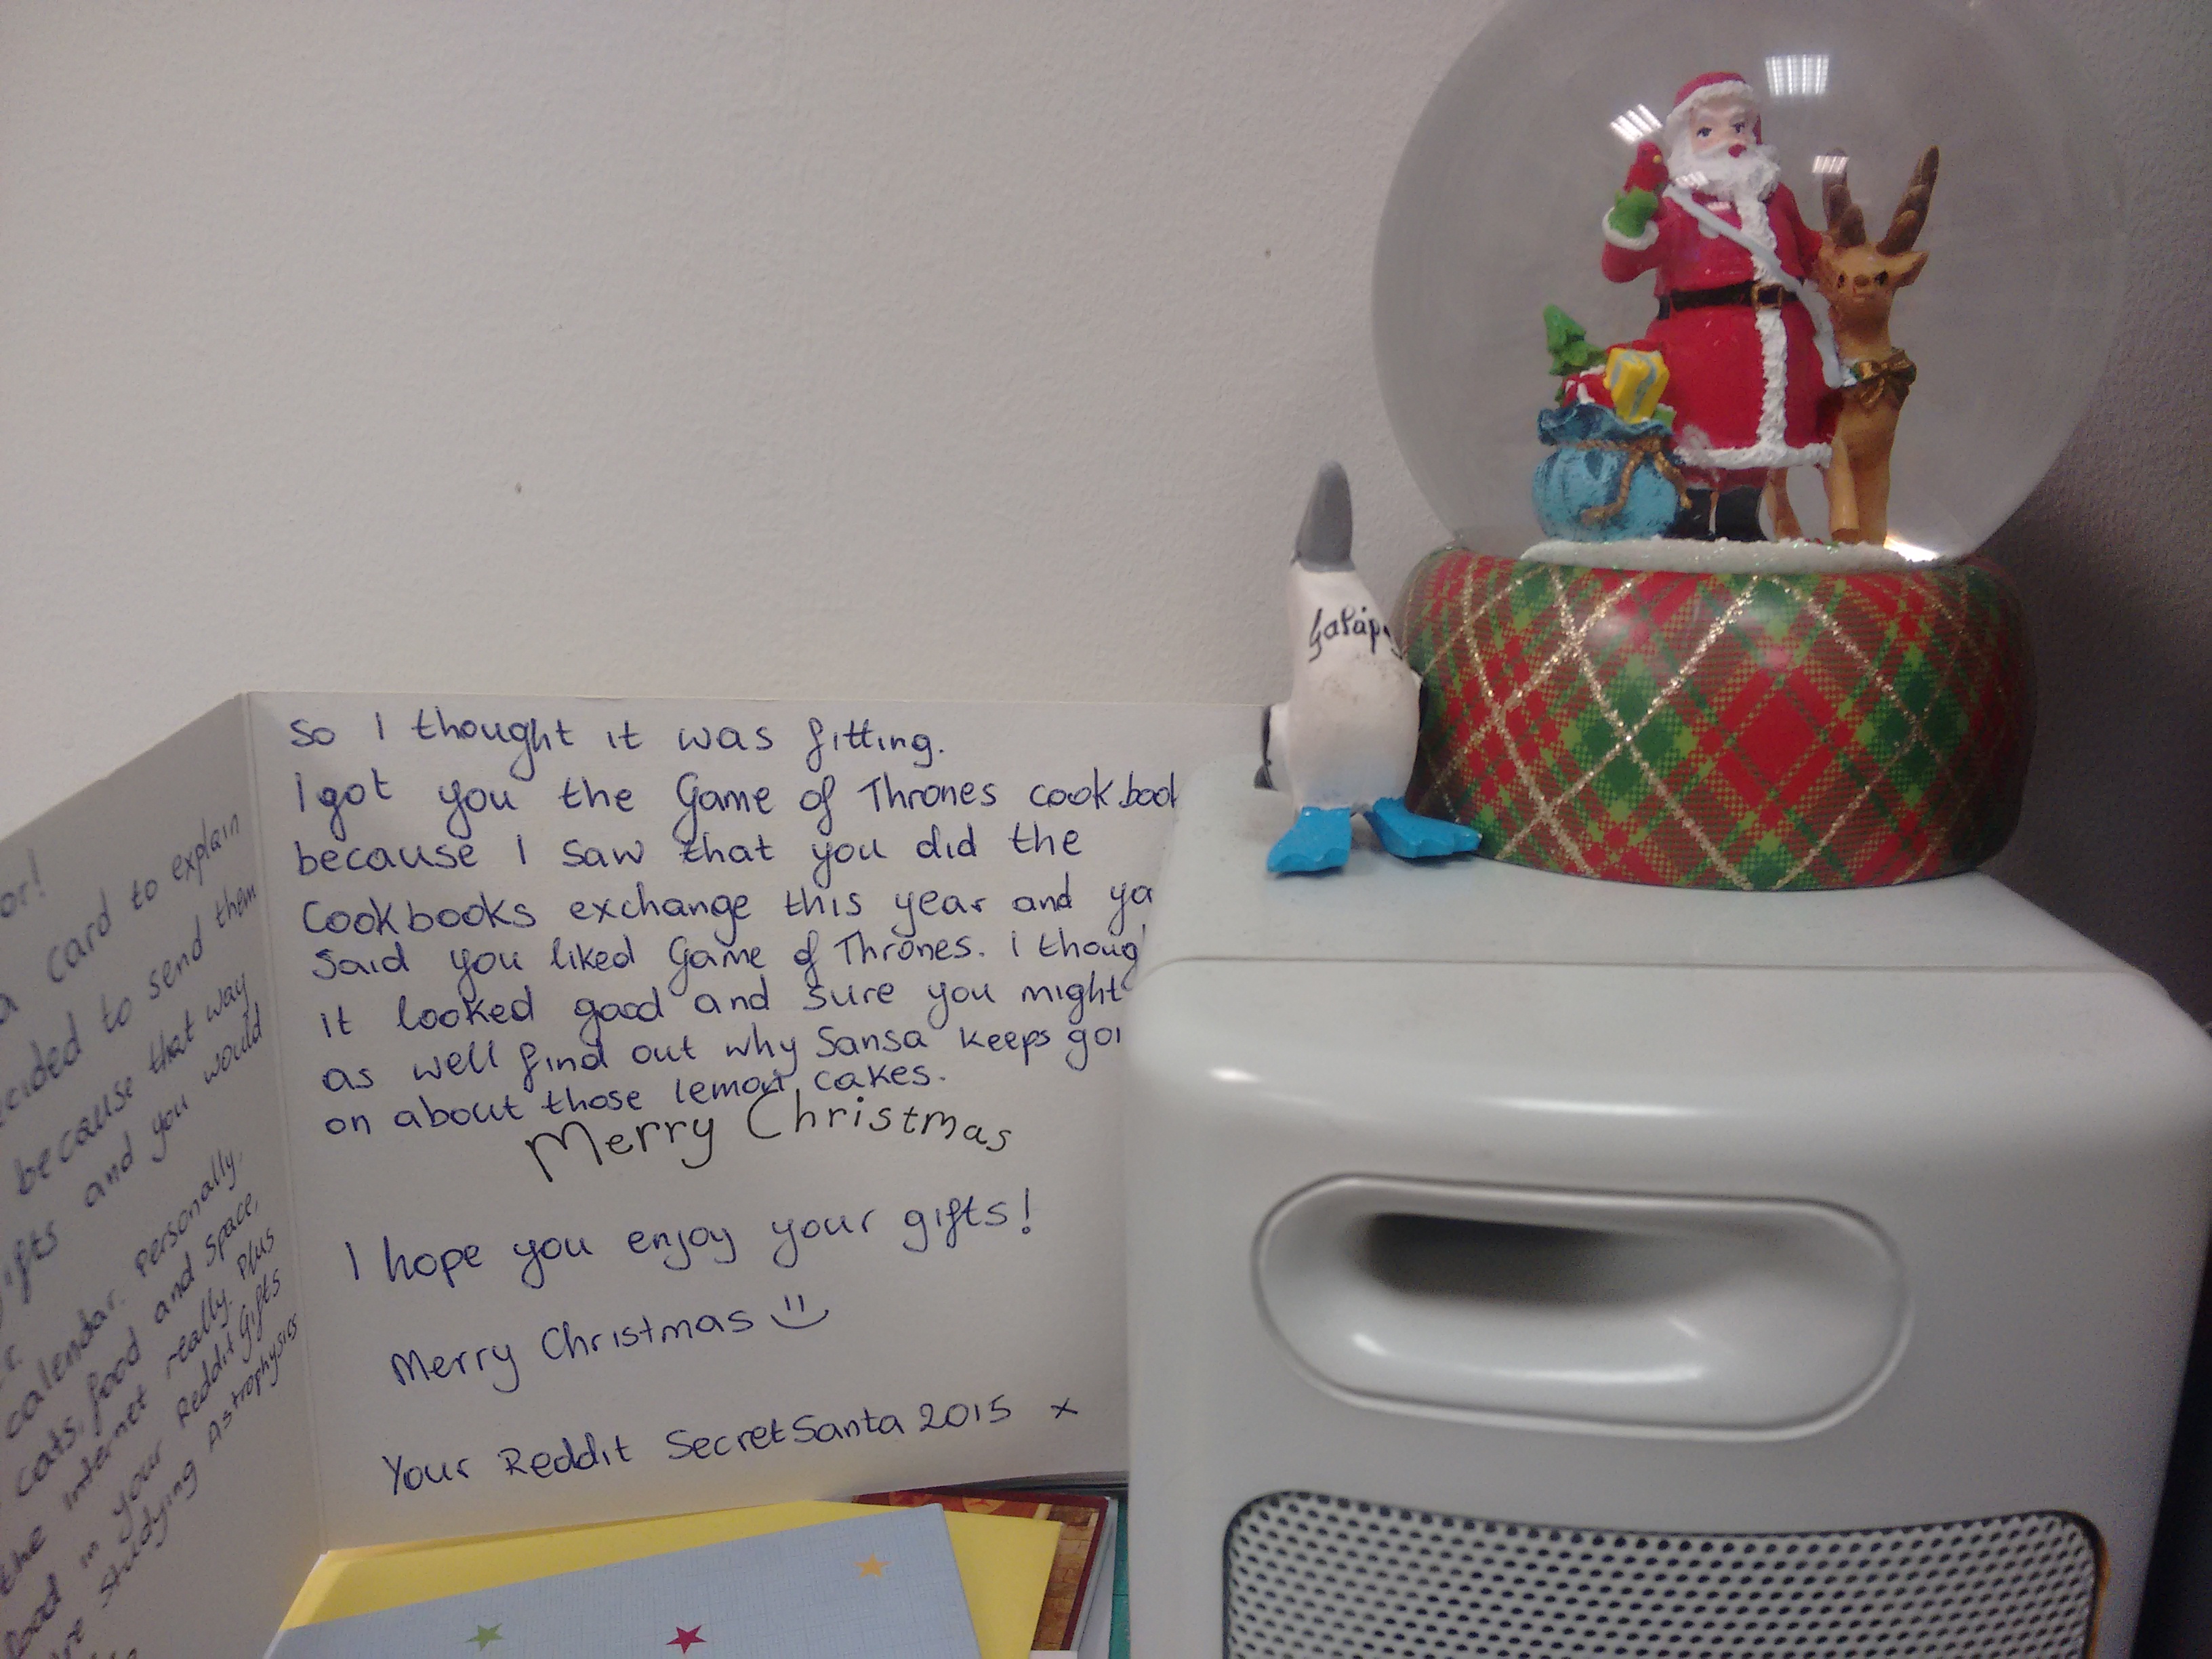 or!
a card to explain
decided to send them
because that way
gifts and you would
calendar. Personally,
cats, food and space,
the internet really. Plus
food in your Reddit Gifts
studying Astrophysics
so I thought it was fitting.
I got you the Game of Thrones cookbook
because I saw that you did the
Cookbooks exchange this year and yo
said you liked Game of Thrones. I thoug
it looked good and sure you might
as well find out why Sansa keeps goi
on about those lemon cakes.
Merry Christmas
I hope you enjoy your gifts!
Merry Christmas
Your Reddit SecretSanta 2015 x
Galáp